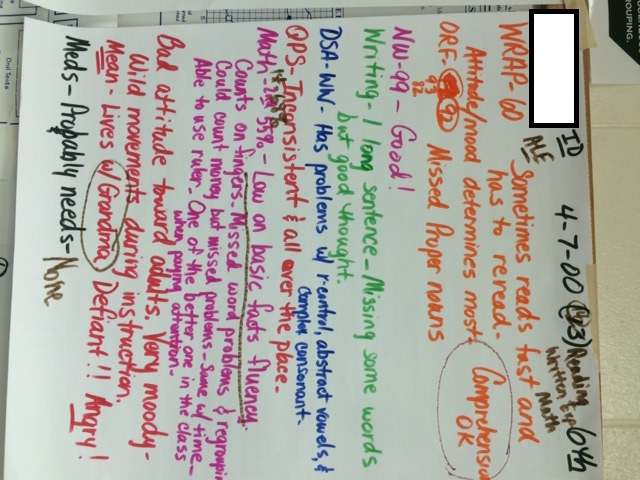 ID 4-7-00 (Gr3) Reading 6th
ALE Written Exp
Math
WRAP-60 Sometimes reads fast and
has to reread.
Attitude/mood determines most.
Comprehension
OK
ORF- 92 Missed Proper nouns
93
92
NW-99 - Good!
Writing- 1 long sentence- Missing some words
but good thought.
DSA-WN- Has problems w/ r control, abstract vowels, &
Complex consonant.
QPS- Inconsistent & all over the place.
Math- 55% - Low on basic facts fluency
Counts on fingers. Missed word problems & regrouping
Could count money but missed problems- Some w/ time-
Able to use ruler. One of the better one in the class
when paying attention.
Bad attitude toward adults, Very moody-
Wild movements during instruction.
Mean- Lives w/ Grandma Defiant!! Angry!
Meds- Probably needs- None
OUPING.